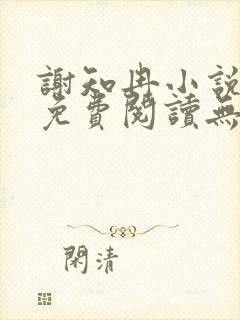 謝知冉小說
免費閱讀無
閑清